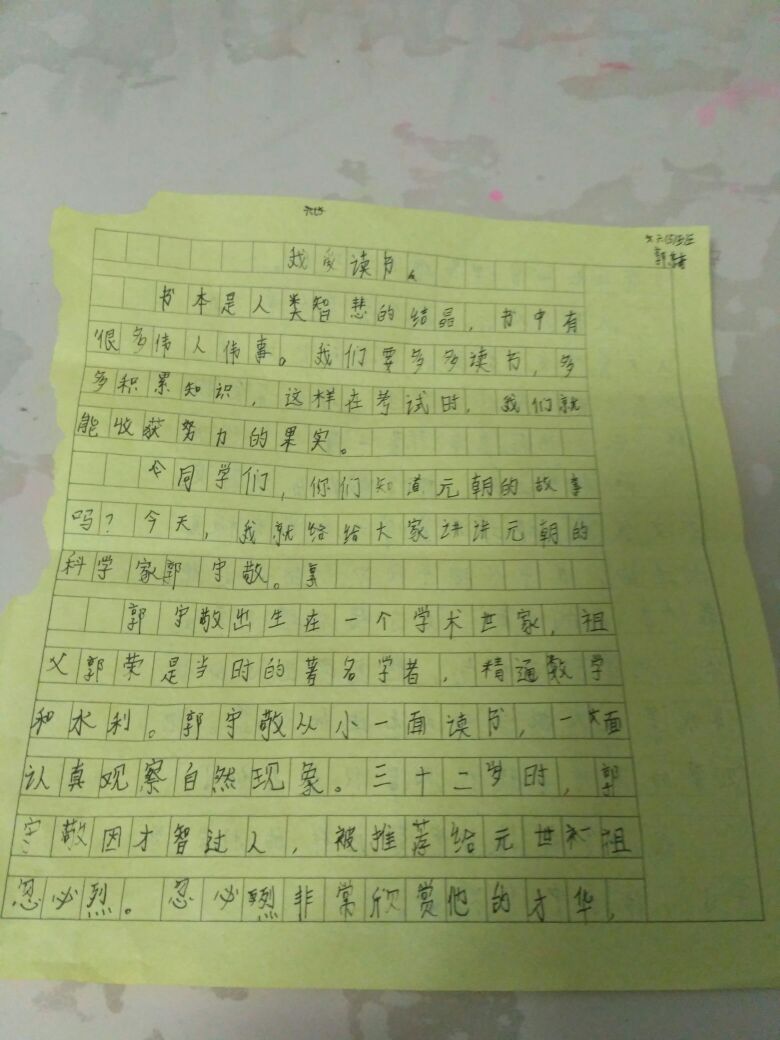 我多读书
书本是人类智慧的结晶，书中有
很多伟人伟事。我们要多多读书，多
多积累知识，这样在考试时，我们就
能收获努力的果实。
同学们，你们知道元朝的故事
吗？今天，我就给给大家讲讲元朝的
科学家郭守敬。
郭守敬出生在一个学术世家，祖
父郭荣是当时的著名学者，精通数学
和水利。郭守敬从小一面读书，一面
认真观察自然现象。三十二岁时，郭
守敬因才智过人，被推荐给元世祖
忽必烈。忽必烈非常欣赏他的才华，